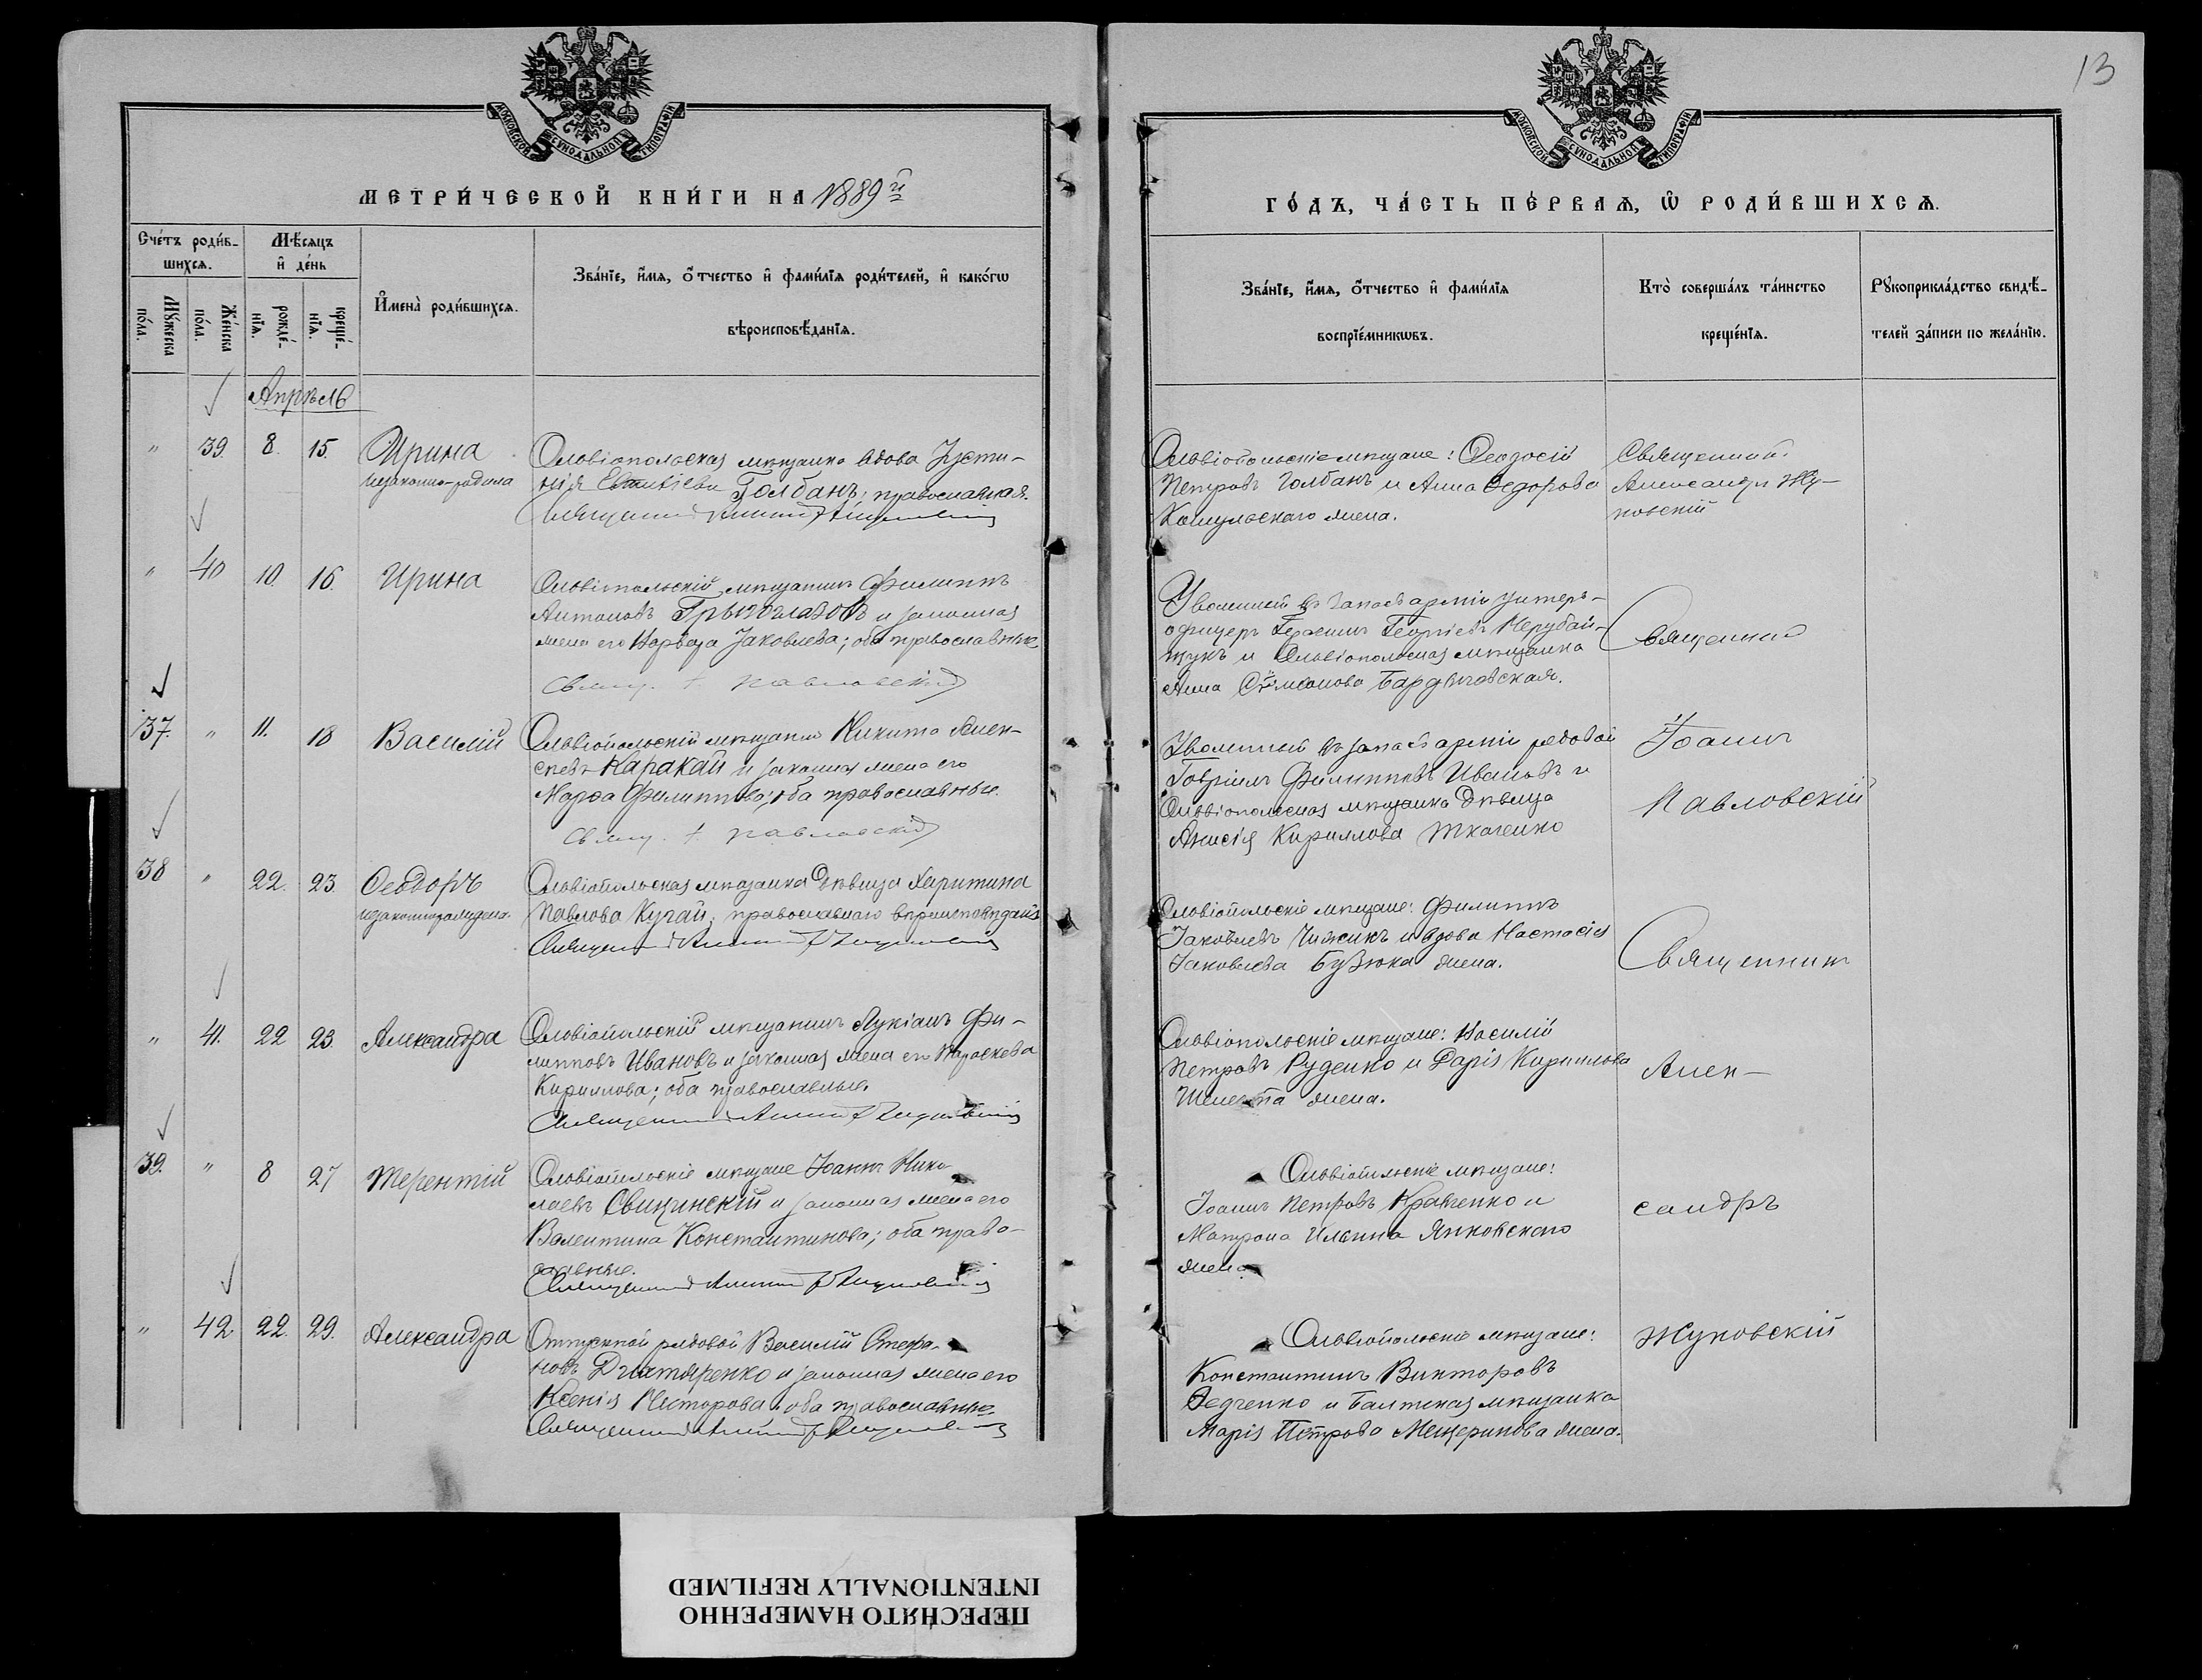 13
МОСКОВСКОЙ СѴНОДАЛЬНОЙ ТИПОГРАФІИ
МОСКОВСКОЙ СѴНОДАЛЬНОЙ ТИПОГРАФІИ
МЕТРИ́ЧЕСКОЙ КНИ́ГИ НА 1889й
ГО́ДЪ, ЧА́СТЬ ПЕ́РВАѦ, Ѡ РОДИ́ВШИХСѦ.
Сче́тъ роди́в-
шихсѧ.
Мѣ́сѧцъ
и҆ де́нь
Мꙋ́жеска
по́ла.
Же́нска
по́ла.
рожде́-
нїѧ.
креще́-
нїѧ.
И҆мена̀ роди́вшихсѧ.
Зва́нїе, и҆́мѧ, ѻ҆́тчество и҆ фами́лїѧ роди́телей, и҆ како́гѡ
вѣроисповѣ́данїѧ.
Зва́нїе, и҆́мѧ, ѻ҆́тчество и҆ фами́лїѧ
воспрїе́мникѡвъ.
Кто̀ соверша́лъ та́инство
креще́нїѧ.
Рꙋкоприкла́дство свидѣ́-
телей за́писи по жела́нїю.
Апрѣль
" 39. 8. 15. Ирина
незаконно-родила
Ольвіопольская мѣщанка вдова Усти-
нія Голбанъ; православная.
Ольвіопольскіе мѣщане: Ѳеодосій
Петровъ Голбанъ и Анна Ѳедорова
Кошульскаго жена.
Священникъ
Александръ Жу-
ковскій
" 40 10. 16. Ирина
Ольвіопольскій мѣщанинъ Филиппъ
Антоновъ Грызоглазовъ и законная
жена его Варвара Іаковлева; оба православные
Свящ. І Павловскій
Уволенный въ запасъ армій унтеръ-
офицеръ Герасимъ Георгіевъ Нерубай-
щукъ и Ольвіопольская мѣщанка
Анна Симеонова Бардычовская.
Священникъ
37. " 11. 18 Василій
Ольвіопольскій мѣщанинъ Никита Алек-
сѣевъ Каракай и законная жена его
Марѳа Филиппова; оба православные.
Свящ. І Павловскій
Уволенный въ запасъ арміи рядовой
Гавріилъ Филипповъ Ивановъ и
Ольвіопольская мѣщанка дѣвица
Анисія Кириллова Ткаченко
Іоаннъ
Павловскій
38 " 22. 23. Ѳеодоръ
незаконнорожденъ.
Ольвіопольская мѣщанка дѣвица Харитина
Павлова Кучай; православнаго вѣроисповѣданія
Ольвіопольскіе мѣщане: Филиппъ
Іаковлевъ Чижикъ и вдова Настасія
Іаковлева Бузюка жена.
Священникъ
" 41. 22 23. Александра
Ольвіопольскій мѣщанинъ Лукіанъ Фи-
липповъ Ивановъ и законная жена его Параскева
Кириллова; оба православные.
Ольвіопольскіе мѣщане: Василій
Петровъ Руденко и Дарія Кириллова
Шелеста жена.
Алек-
39. " 8 27 Терентій
Ольвіопольскіе мѣщане Іоаннъ Нико-
лаевъ Свицинскій и законная жена его
Валентина Константинова; оба право-
славные.
Ольвіопольскіе мѣщане:
Іоаннъ Петровъ Кравченко и
Матрона Ильина Янковскаго
жена
сандръ
" 42. 22. 29. Александра
Отпускной рядовой Василій Стефа-
новъ Дихтяренко и законная жена его
Ксенія Несторова; оба православные.
Ольвіопольскіе мѣщане:
Константинъ Викторовъ
Федченко и Балтская мѣщанка
Марія Петрова Мещерикова жена.
Жуковскій
ПЕРЕСНЯТО НАМЕРЕННО
INTENTIONALLY REFILMED